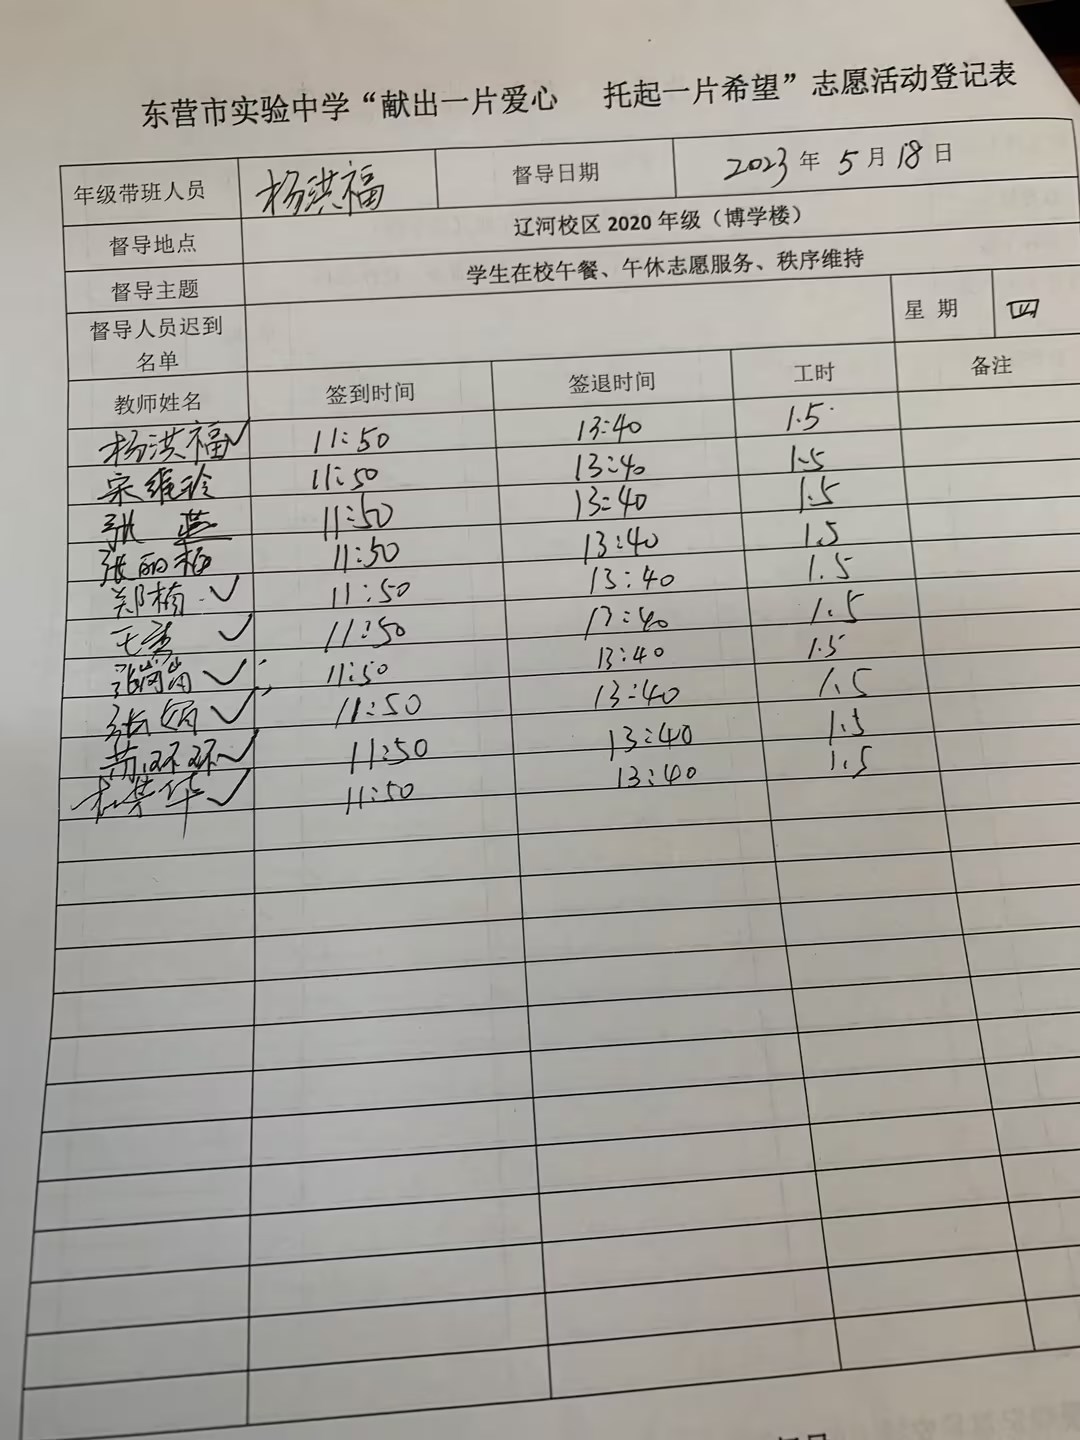 东营市实验中学“献出一片爱心 托起一片希望”志愿活动登记表
年级带班人员 杨洪福 督导日期 2023年5月18日
督导地点 辽河校区2020年级（博学楼）
督导主题 学生在校午餐、午休志愿服务、秩序维持
督导人员迟到名单 星期 四
教师姓名 签到时间 签退时间 工时 备注
杨洪福✓ 11:50 13:40 1.5
宋维玲 11:50 13:40 1.5
张燕 11:50 13:40 1.5
张丽梅 11:50 13:40 1.5
郑楠✓ 11:50 13:40 1.5
王秀✓ 11:50 13:40 1.5
张✓ 11:50 13:40 1.5
张娟✓ 11:50 13:40 1.5
苏环环✓ 11:50 13:40 1.5
杜荣华✓ 11:50 13:40 1.5